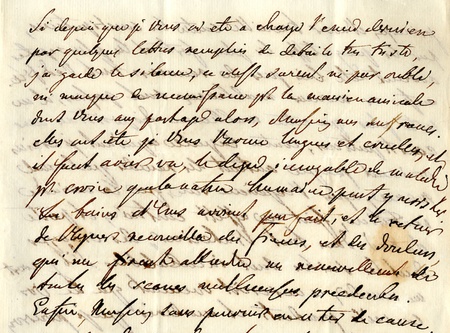 Si depuis que je vous ai été a charge l'ennui dernier
par quelques lettres remplies de details tres triste,
j'ai gardé le silence, ce n'est surement ni par oubli,
ni manque de reconnoissance pr la maniere amicale
dont vous avez partagé alors, Monsieur mes souffrances.
elles ont été je vous l'avoue longues et cruelles, et
il faut avoir vu le degré incroyable de maladie
pr croire que la nature humaine peut y resister.
Les bains d'Ems avoient fait, et le retour
de renouvella des fievres, et des douleurs,
qui me attendre un renouvellement de
toutes les scenes malheureuses precedentes
Enfin, Monsieur sans pouvoir en cause